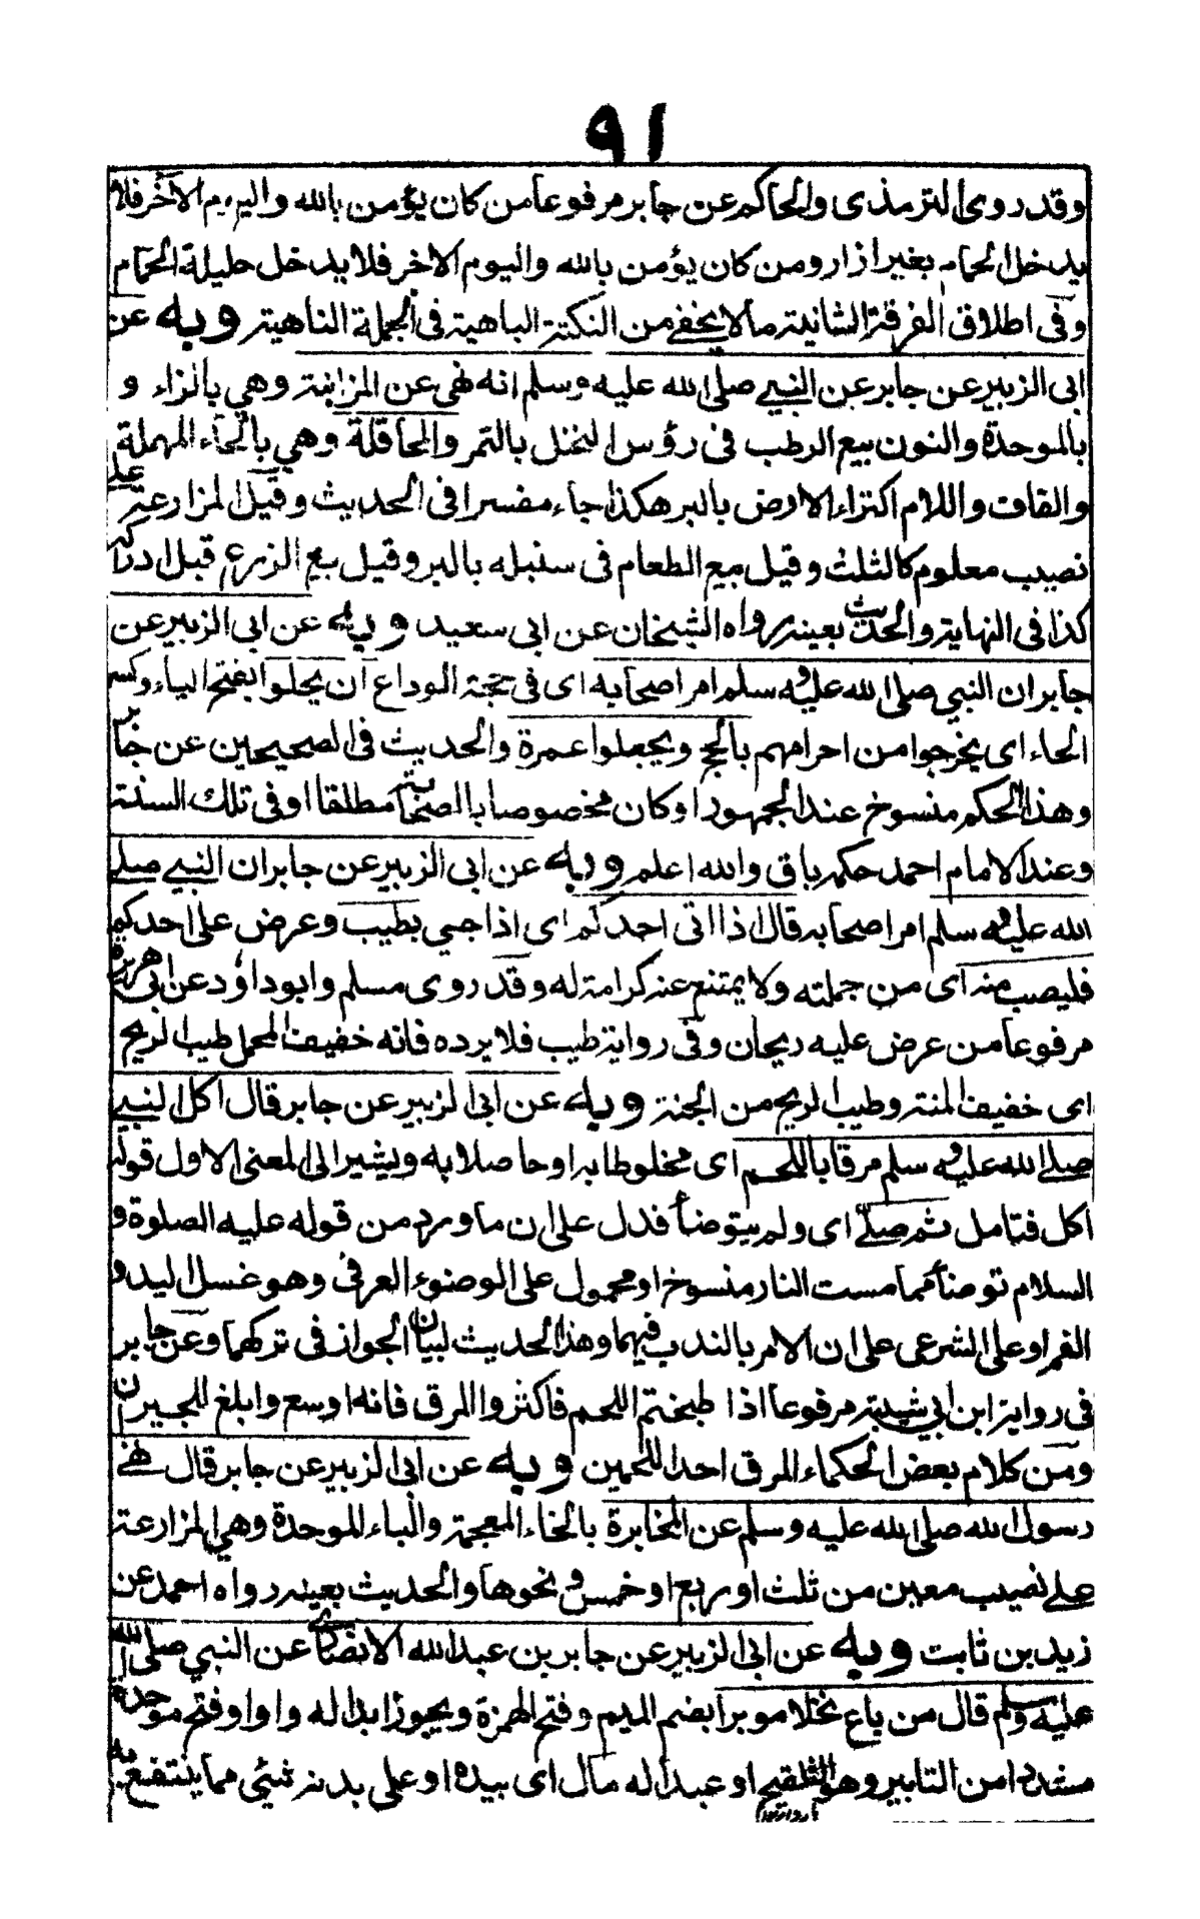 ٩١
وقد روى الترمذى والحاكم عن جابر مرفوعا من كان يؤمن بالله واليوم الآخر فلا
يدخل الحمام بغير ازار ومن كان يؤمن بالله واليوم الاخر فلا يدخل حليلة الحمام
وفى اطلاق الفرقة الثانية مالا يخفى من النكتة الباهية فى الجملة الناهية وبه عن
ابى الزبير عن جابر عن النبي صلى الله عليه وسلم انه نهى عن المزابنة وهي بالزاء و
بالموحدة والنون بيع الرطب فى رؤس النخل بالتمر والمحاقلة وهي بالحاء المهملة
والقاف واللام اكتراء الارض بالبر هكذا جاء مفسرا فى الحديث وقيل المزارعة على
نصيب معلوم كالثلث وقيل بيع الطعام فى سنبله بالبر وقيل بيع الزرع قبل ادراكه
كذا فى النهاية والحديث بعينه رواه الشيخان عن ابى سعيد وبه عن ابى الزبير عن
جابر ان النبي صلى الله عليه وسلم امر اصحابه اى فى حجة الوداع ان يحلوا بفتح الياء وكسر
الحاء اى يخرجوا من احرامهم بالحج ويجعلوا عمرة والحديث فى الصحيحين عن جابر
وهذا الحكم منسوخ عند الجمهور او كان مخصوصا بالصحابة مطلقا او فى تلك السنة
وعند الامام احمد حكمه باق والله اعلم وبه عن ابى الزبير عن جابر ان النبي صلى
الله عليه وسلم امر اصحابه قال اذا اتى احدكم اى اذا جيئ بطيب وعرض على احدكم
فليصب منه اى من جملته ولا يمتنع عنه كرامة له وقد روى مسلم وابو داؤد عن ابى هريرة
مرفوعا من عرض عليه ريحان وفى رواية طيب فلا يرده فانه خفيف المحمل طيب الريح
اى خفيف المنة وطيب الريح من الجنة وبه عن ابى الزبير عن جابر قال اكل النبي
صلى الله عليه وسلم مرقا باللحم اى مخلوطا به او حاصلا به ويشير الى المعنى الاول قوله
اكل فتامل ثم صلى اى ولم يتوضأ فدل على ان ما ورد من قوله عليه الصلوة و
السلام توضأ مما مست النار منسوخ او محمول على الوضوء العرفى وهو غسل اليد و
الفم او على الشرعى على ان الامر بالندب فيهما وهذا الحديث لبيان الجواز فى تركهما وعن جابر
فى رواية ابن ابي شيبة مرفوعا اذا طبختم اللحم فاكثروا المرق فانه اوسع وابلغ للجيران
ومن كلام بعض الحكماء المرق احد اللحمين وبه عن ابى الزبير عن جابر قال نهى
رسول الله صلى الله عليه وسلم عن المخابرة بالخاء المعجمة والباء الموحدة وهي المزارعة
على نصيب معين من ثلث او ربع او خمس ونحوها والحديث بعينه رواه احمد عن
زيد بن ثابت وبه عن ابى الزبير عن جابر بن عبد الله الانصارى عن النبي صلى الله
عليه وسلم قال من باع نخلا موبرا بضم الميم وفتح الهمزة ويجوز ابداله واوا وفتح موحدة
مشددة من التابير وهو التلقيح او عبدا له مال اى بيده او على بدنه شيئى مما ينتفع به